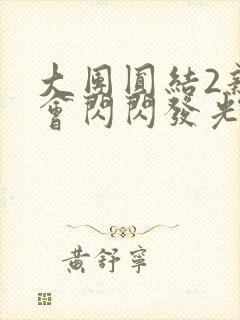 大團圓結2新
會閃閃發光
黃舒寧